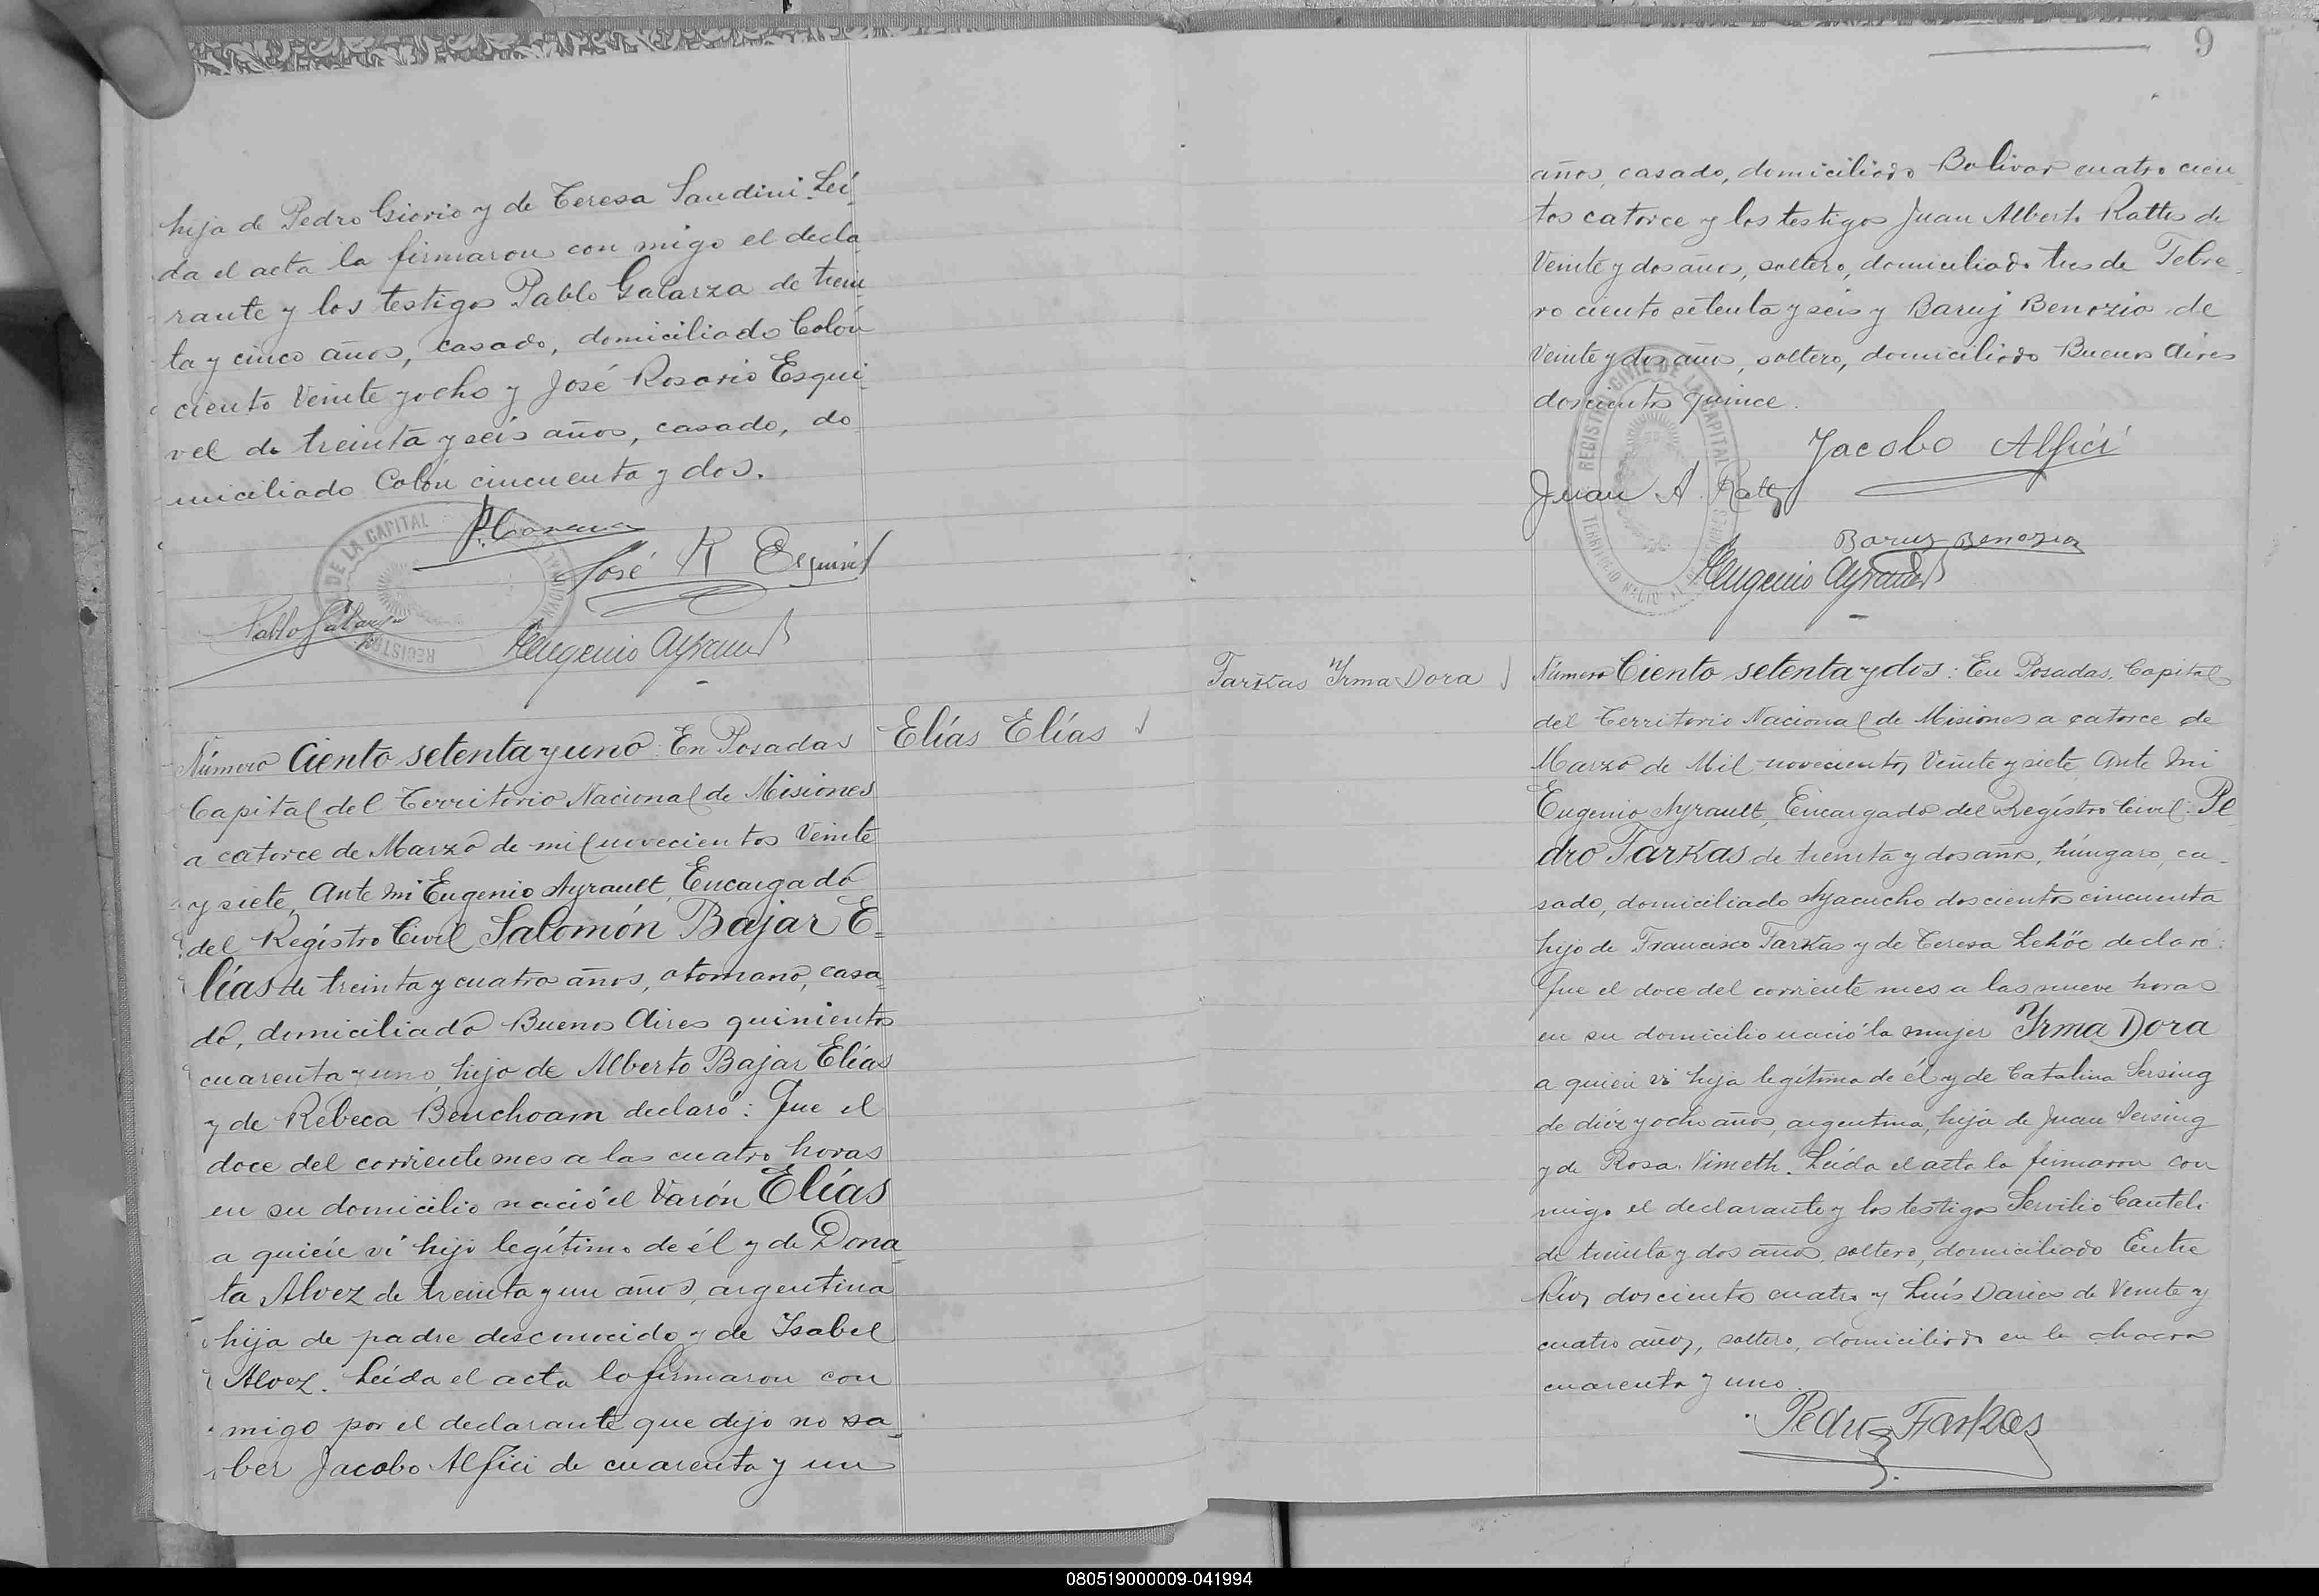 hija de Pedro Giorio y de Teresa Sandini. Leí-
da el acta la firmaron con migo el decla
rante y los testigos Pablo Galarza de trein
ta y cinco años, casado, domiciliado Colón
ciento Veinte y ocho y José Rosario Esqui
vel de treinta y seis años, casado, do
miciliado Colón cincuenta y dos.
José R Esquivel
Pablo Galarza
Eugenio Ayrault
DE LA CAPITAL
REGISTRO
Elías Elías
Número Ciento setenta y uno: En Posadas
Capital del Territorio Nacional de Misiones
a catorce de Marzo de mil novecientos Veinte
y siete, Ante mi Eugenio Ayrault, Encargado
del Registro Civil Salomón Bajar E=
lías de treinta y cuatro años, otomano, casa
do, domiciliado Buenos Aires quinientos
cuarenta y uno, hijo de Alberto Bajar Elías
y de Rebeca Benchoam declaró: Que el
doce del corriente mes a las cuatro horas
en su domicilio nació el Varón Elías
a quien ví hijo legítimo de él y de Dona
ta Alvez de treinta y un años, argentina
hija de padre desconocido y de Isabel
Alvez. Leída el acta la firmaron con
migo por el declarante que dijo no sa-
ber Jacobo Alfici de cuarenta y un
9
años, casado, domiciliado Bolivar cuatro cien
tos catorce y los testigos Juan Alberto Rattes de
Veinte y dos años, soltero, domiciliado tres de Febre
ro ciento setenta y seis y Baruj Benozio de
Veinte y dos años, soltero, domiciliado Buenos Aires
doscientos quince.
REGISTRO CIVIL DE LA CAPITAL
TERRITORIO NACIONAL DE MISIONES
Jacobo Alfici
Juan A.
Baruj Benozio
Eugenio Ayrault
Farkas Yrma Dora
Número Ciento setenta y dos: En Posadas, Capital
del Territorio Nacional de Misiones a catorce de
Marzo de Mil novecientos Veinte y siete, Ante mi
Eugenio Ayrault, Encargado del Registro Civil: Pe
dro Farkas de treinta y dos años, húngaro, ca-
sado, domiciliado Ayacucho doscientos cincuenta
hijo de Francisco Farkas y de Teresa Lehöc declaró:
Que el doce del corriente mes a las nueve horas
en su domicilio nació la mujer Yrma Dora
a quien ví hija legítima de él y de Catalina Sersing
de diéz y ocho años, argentina, hija de Juan Sersing
y de Rosa Vimeth. Leída el acta la firmaron con
migo el declarante y los testigos Servilio Cauteli
de treinta y dos años, soltero, domiciliado Entre
Rios doscientos cuatro y Luís Darios de Veinte y
cuatro años, soltero, domiciliado en la chacra
cuarenta y uno.
Pedro Farkas
080519000009-041994